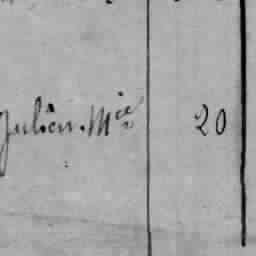 Julien. Mie 20